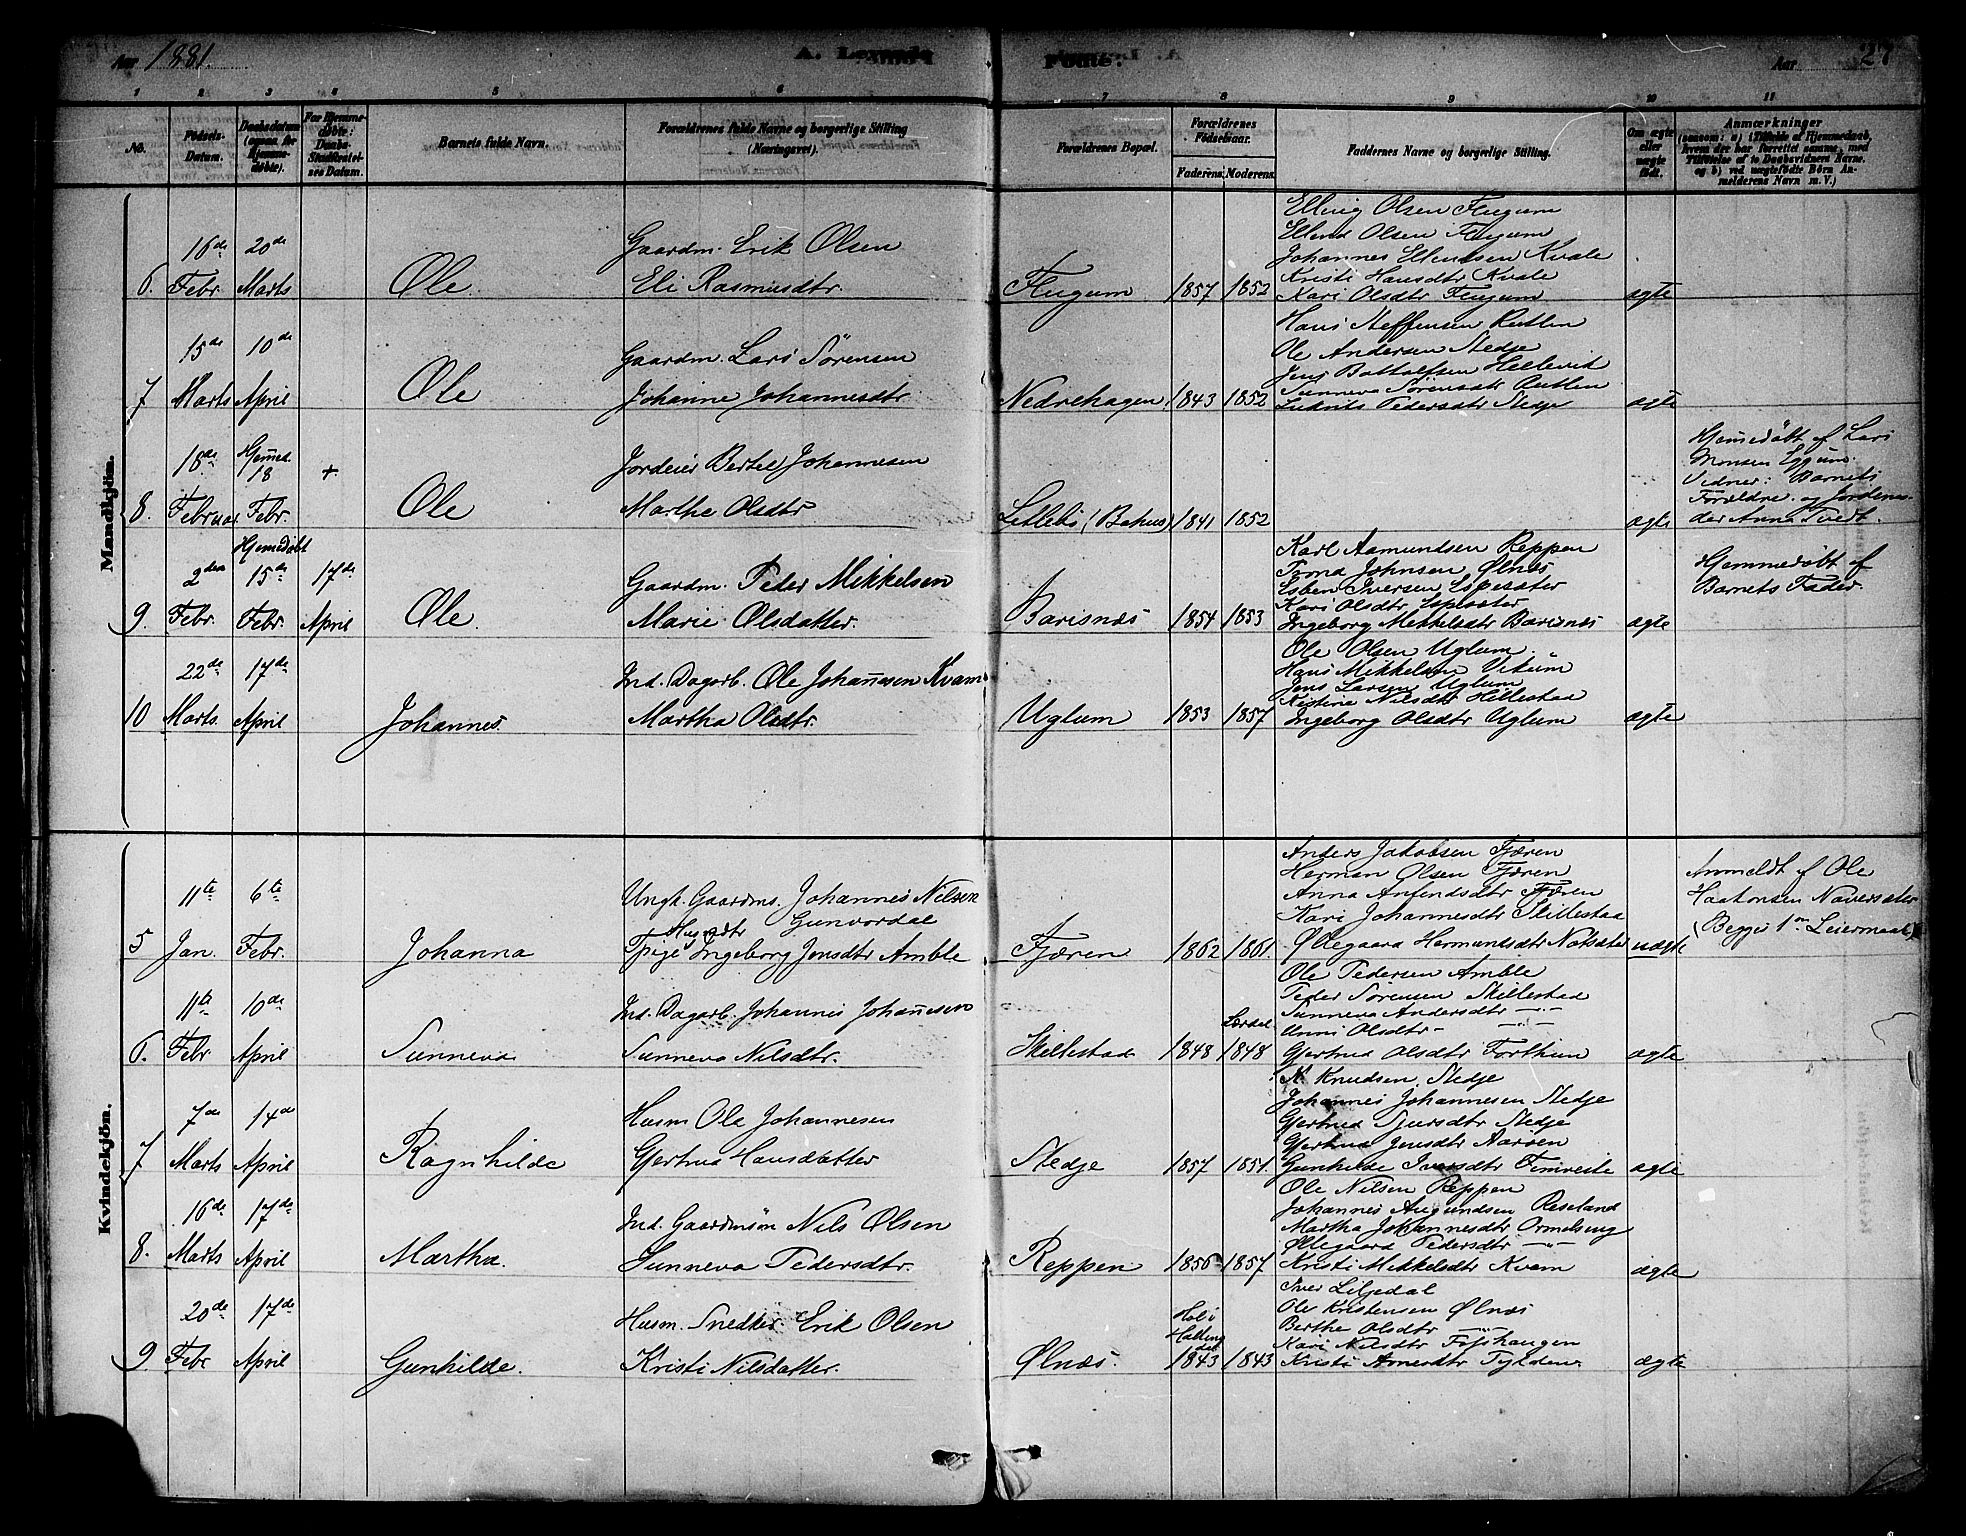 Aar 1881. A. Levende Födte. Aar 27
1 2 3 4 5 6 7 8 9 10 11
No. Födsels-Datum. Daabsdatum (ogsaa for Hjemmedöbte). For Hjemmedöbte: Daabs-Stadfæstelses Datum. Barnets fulde Navn. Forældrenes fulde Navne og borgerlige Stilling (Næringsvei). Forældrenes Bopæl. Forældrenes Födselsaar. Faderens. Moderens. Faddernes Navne og borgerlige Stilling. Om ægte eller uægte födt. Anmærkninger (saasom: a) i Tilfælde af Hjemmedaab, hvem der har forrettet samme, med Tilföielse af to Daabsvidners Navne, og b) ved uægtefödte Börn Anmelderens Navn m. V.)
Mandkjön.
6. 16de Febr. 20de Marts Ole Gaardm. Erik Olsen
Eli Rasmusdtr. Flugum 1857 1852 Elling Olsen Flugum
Ellend Olsen Flugum
Johannes Ellendsen Kvale
Kristi Hansdtr Kvale
Kari Olsdtr Flugum ægte
7 15de Marts 10de April Ole Gaardm. Lars Sörensen
Johanne Johannesdtr Nedrehagen 1843 1852 Hans Steffensen Rutlin
Ole Andersen Stedje
Jens Bottolfsen Hellevid
Sunneva Sörensdtr Rutlin
Ludvits Pedersdtr Stedje ægte
8. 18de Februar. Hjemed. 18 Febr. + Ole Jordeier Bertel Johannesen
Marthe Olsdtr Litlebö (Bahus) 1841 1852 ægte
Hjemedöbt af Lars
Monsen Eggum.
Vidner: Barnets
Forældre og Jordemo-
der Anna Tvedt.
9. 2den Febr. Hjemedöbt 15de Febr. 17de April Ole Gaardm. Peder Mikkelsen
Marie Olsdatter. Barsnæs 1854 1853 Karl Aamundsen Reppen
Trond Johnsen Ølnæs
Esben Iversen Espesæter
Kari Olsdtr Espesæter
Ingeborg Mikkelsdtr Barsnæs ægte
Hjemmedöbt af
Barnets Fader.
10 22de Marts. 17de April Johannes. Ind. Dagarb. Ole Johannesen Kvam
Martha Olsdtr. Uglum 1853 1857 Ole Olsen Uglum.
Hans Mikkelsen Vikum
Jens Larsen Uglum
Kistine Nilsdtr Hillestad
Ingeborg Olsdtr Uglum ægte
Kvindekjön.
5 11te Jan. 6te Febr. Johanna Ungk. Gaardms. Johannes Nilsen
Gunvordal
Husmdtr
Pige Ingeborg Jensdtr Amble Fjæren 1862 1861. Anders Jakobsen Fjæren
Herman Olsen Fjæren
Anna Anfindsdtr Fjæren
Kari Johannesdtr Skillestad
Øllegaard Hermundsdtr Nolsæter uægte
Anmeldt af Ole
Haakonsen Naversæter
(Begges 1ste Leiermaal)
6. 11te Febr. 10de April Sunneva Ind. Dagarb. Johannes Johannesen
Sunneva Nilsdtr. Skillestad 1848 Lærdal 1848 Ole Pedersen Amble
Peder Sörensen Skillestad
Sunneva Andersdtr — " —
Unni Olsdtr — " —
Gjertrud Olsdtr Forthun ægte
7 7de Marts 14de April Ragnhilde Husm Ole Johannesen
Gjertrud Hansdatter Stedje 1857 1851. N. Knudsen Stedje
Johannes Johannesen Stedje
Gjertrud Sjursdtr Stedje
Gjertrud Jensdtr Aaröen
Gunhilde Iversdtr Fimreite ægte
8. 16de Marts 17de April Martha. Ind. Gaardmsön Nils Olsen
Sunneva Pedersdtr. Reppen 1856 1857 Ole Nilsen Reppen
Johannes Augundsen Reseland
Martha Johannesdtr Ormelseng
Øllegaard Pedersdtr — " —
Kristi Mikkelsdtr Kvam ægte
9 20de Febr 17de April Gunhilde. Husm. Snedker Erik Olsen
Kristi Nilsdatter. Ølnæs. Hol i Hallingdal 1843 1843 Iver Liljedal
Ole Kristensen Ølnæs
Berthe Olsdtr — " —
Kari Nilsdtr Fosshaugen
Kristi Arnesdtr Tylden ægte